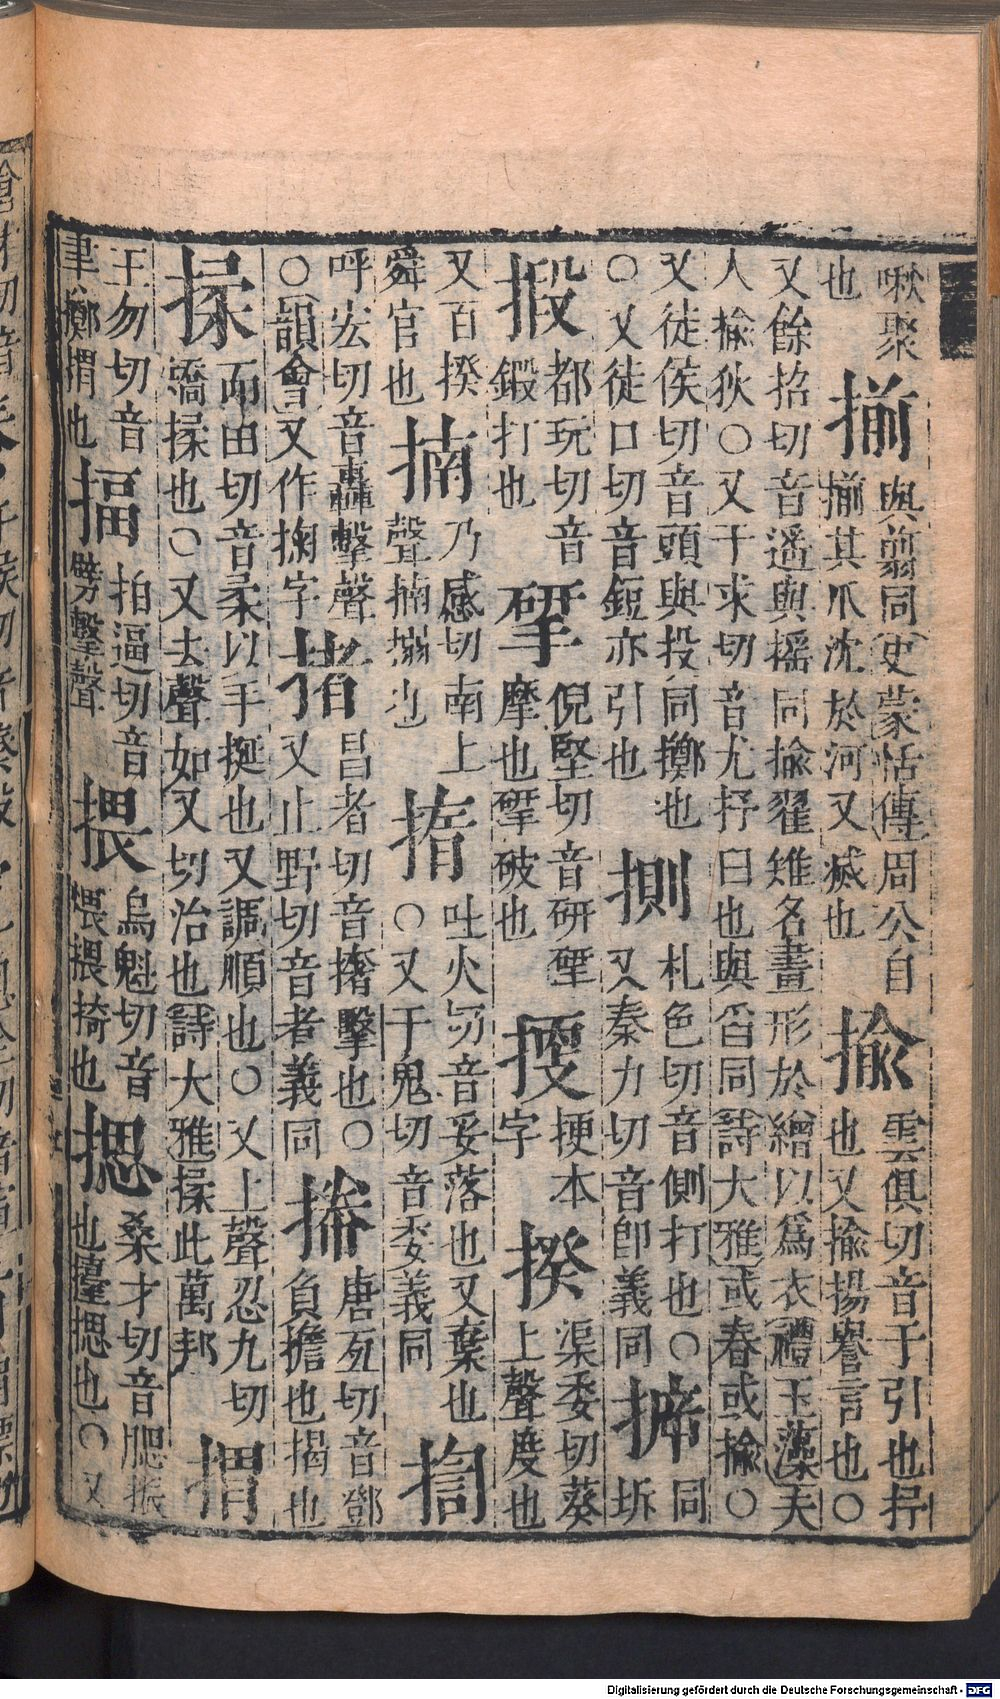 啾聚
也
揃
與翦同史蒙恬傳周公自
揃其爪沈於河又㓕也
揄
雲俱切音于引也抒
也又揄揚譽言也○
又餘招切音遙與搖同揄翟雉名畫形於繒以爲衣禮玉藻夫
人揄狄○又于求切音尤抒臼也與舀同詩大雅或舂或揄○
又徒侯切音頭與投同擲也
○又徒口切音鋀亦引也
札色切音側打也○
又秦力切音卽義同
同
坼
都玩切音
鍛打也
揅
倪堅切音研揅
摩也揅破也
梗本
字
揆
渠委切葵
上聲度也
又百揆
舜官也
揇
乃感切南上
聲揇搦也
吐火切音妥落也又棄也
○又于鬼切音委義同
揈
呼宏切音轟擊聲
○韻會又作字
昌者切音撦擊也○
又止野切音者義同
唐亙切音鄧
負擔也揭也
揉
而由切音柔以手挻也又調順也○又上聲忍九切
矯揉也○又去聲如又切治也詩大雅揉此萬邦
王勿切音
聿擲也
揊
拍逼切音
劈擊聲
揋
烏魁切音
煨揋掎也
揌
桑才切音腮振
也擡揌也○又
Digitalisierung gefördert durch die Deutsche Forschungsgemeinschaft - DFG